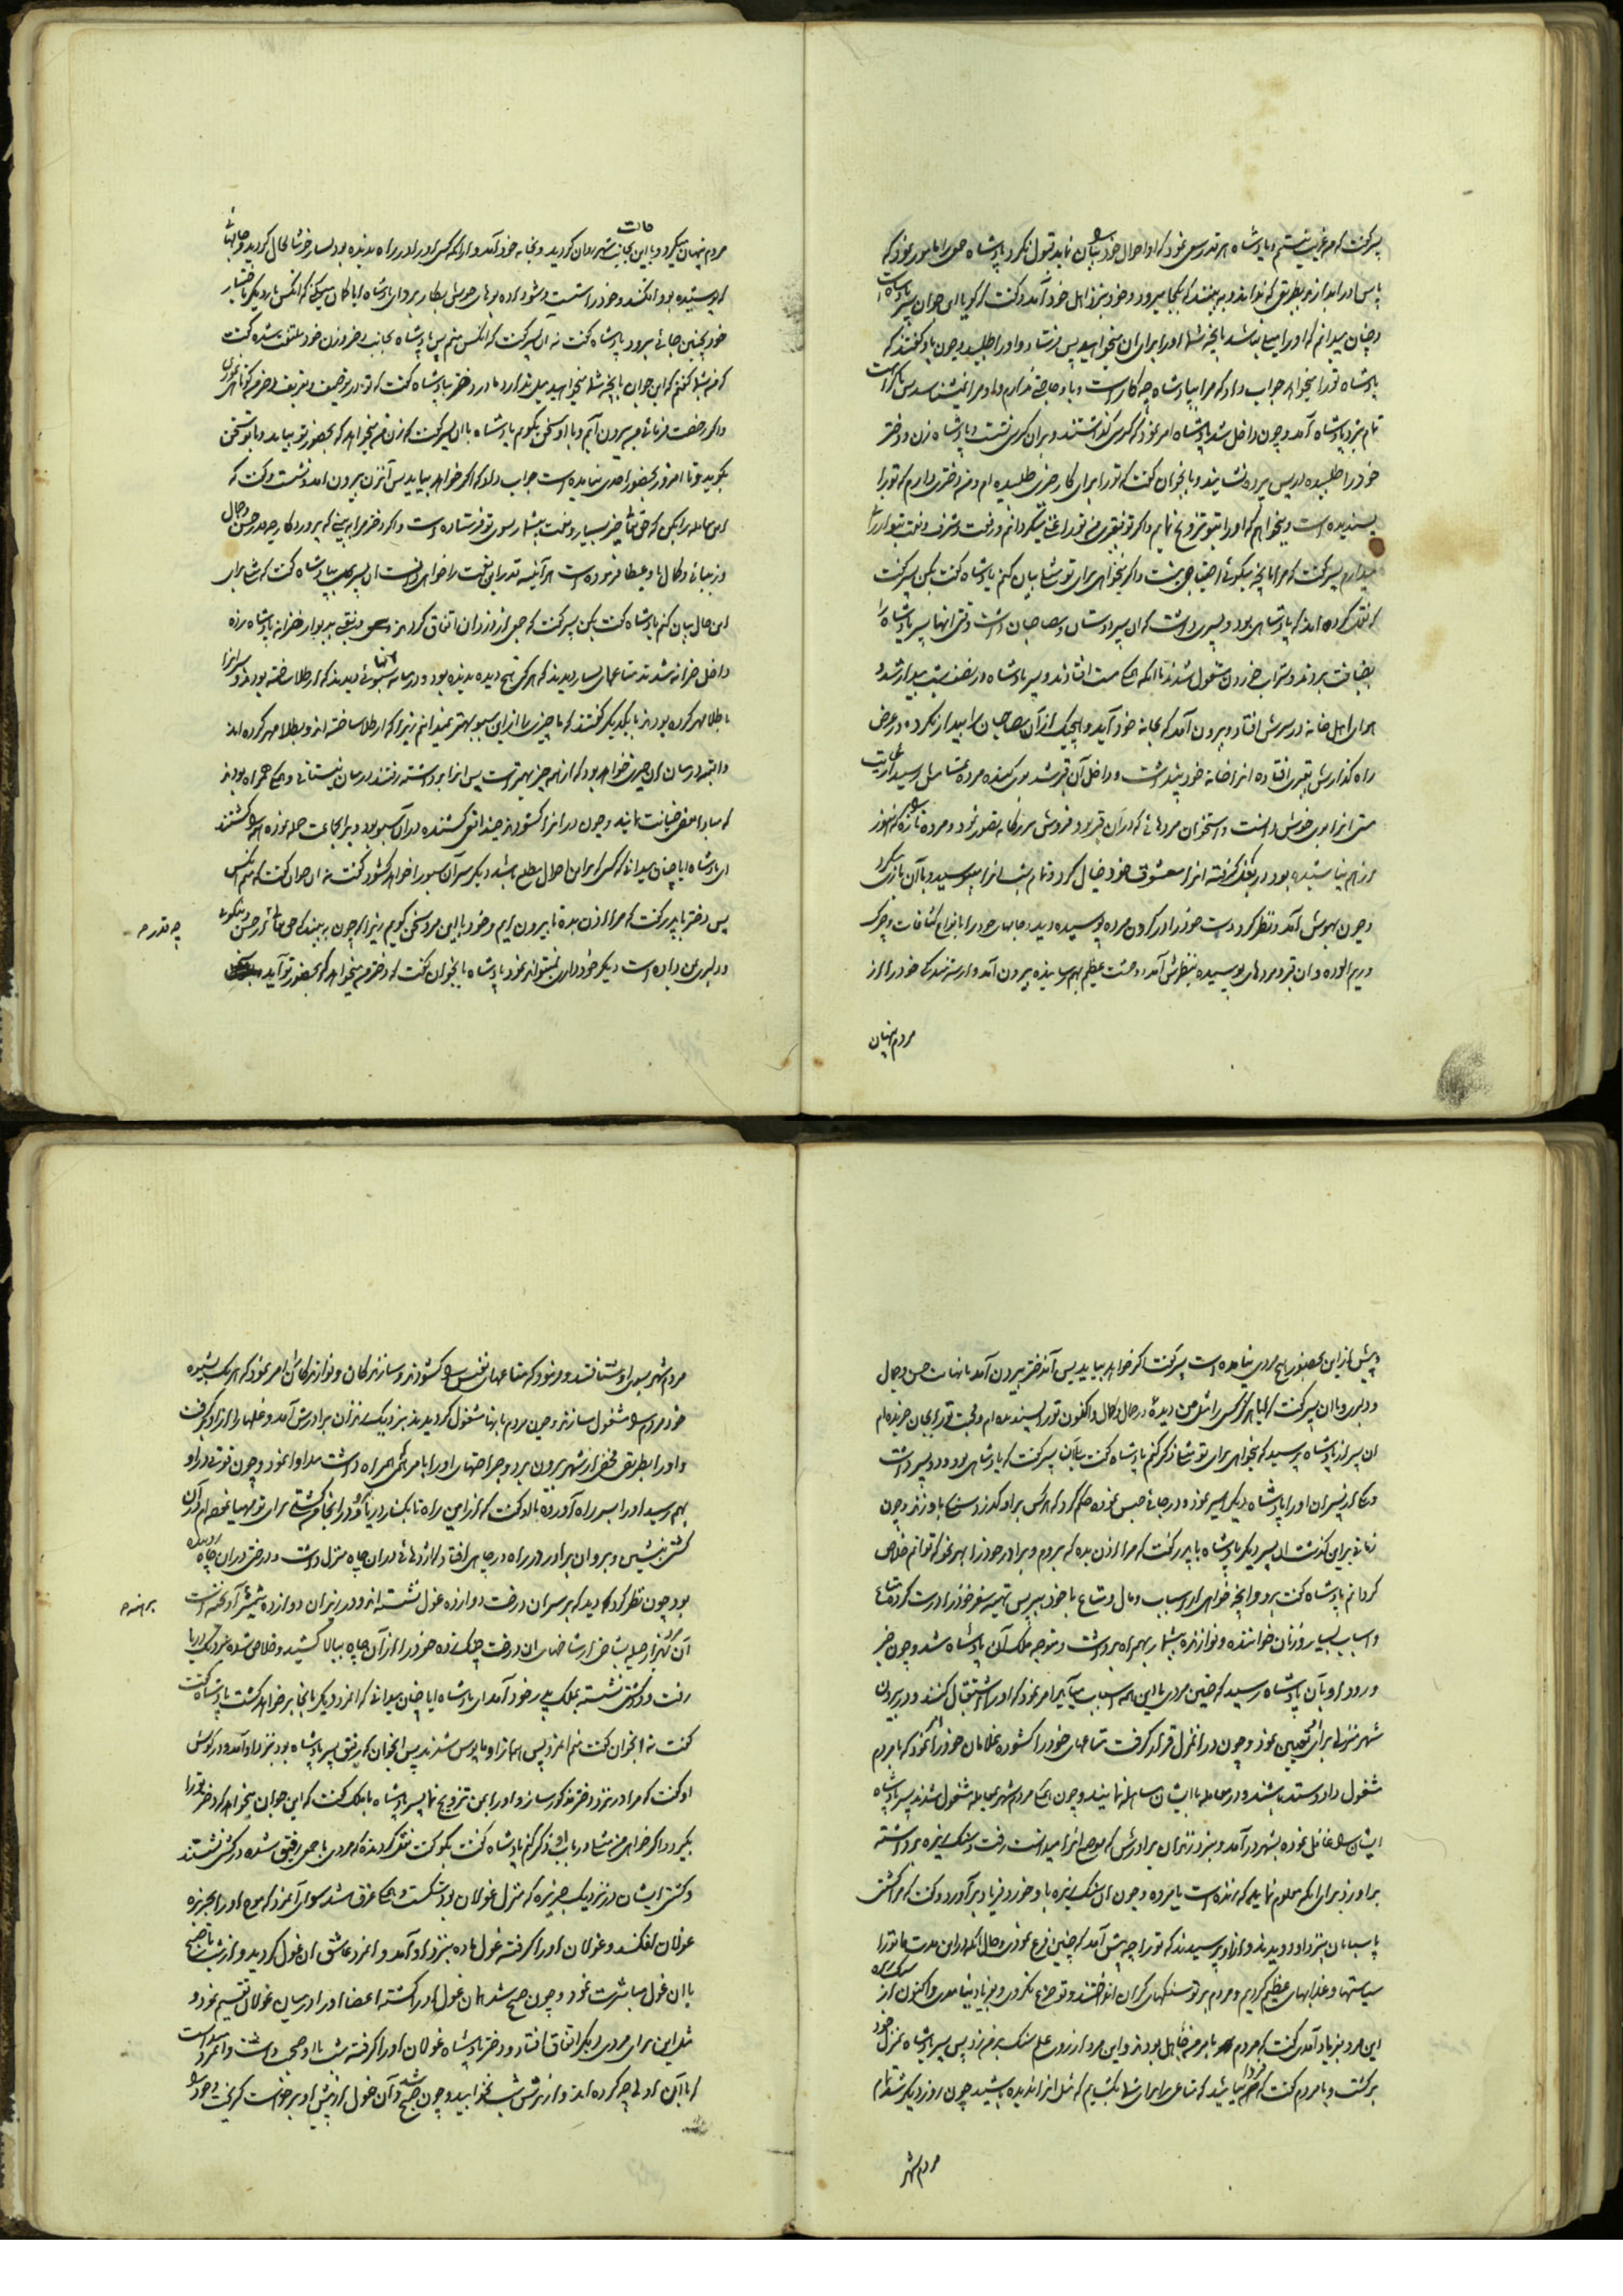 پسر گفت که من غریب نیستم و پادشاه هر قدر سعی نمود که او احوال خود را بیان نماید قبول نکرد پادشاه جمعی را مامور نمود که
پاس او را بدارند بطریقی که نداند و به بینند که بکجا میرود و خود بنزد اهل خود آمد و گفت که گویا این جوان پسر پادشاه است
و چنان میدانم که او را میل نباشد بانچه شما او را برای آن میخواهید پس فرستاد و او را طلبید و چون باو گفتند که
پادشاه تو را میخواهد جواب داد که مرا با پادشاه چه کار است و باو حاجتی ندارم و او مرا نمیشناسد پس باکراهت
تمام بنزد پادشاه آمد و چون داخل شد پادشاه امر نمود که کرسی گذاشتند و بر آن کرسی نشست و پادشاه زن و دختر
خود را طلبیده در پس پرده نشانید و بانجوان گفت که تو را برای کار خیری طلبیده ام و من دختری دارم که تو را
پسندیده است و میخواهم که او را بتو تزویج نمایم و اگر تو فقیری من تو را غنی میگردانم و رفعت و شرف و نعمت بتو ارزانی
میدارم پسر گفت که مرا بانچه میگوئی احتیاجی نیست و اگر میخواهی برای تو مثلی بیان کنم پادشاه گفت بکن پسر گفت
که نقل کرده اند که پادشاهی بود و پسری داشت که آن پسر دوستان و مصاحبان داشت وقتی آنها پسر پادشاه را
بضیافت بردند و بشراب خوردن مشغول شدند تا اینکه همگی مست افتادند و پسر پادشاه در نصف شب بیدار شد و
هوای اهل خانه در سرش افتاد و بیرون آمد که بخانه خود آید و هیچیک از آن مصاحبان را بیدار نکرد و در عرض
راه گذارش بقبری افتاد آنرا خانه خود پنداشت و داخل آن قبر شد بوی گنده مرده بمشامش رسید از غایت
مستی آنرا بوی خوش دانست و استخوان مردهائی که در آن قبر بود فروش بزرگانه تصور نمود و مرده تازه را که هنوز
از هم نپاشیده بود در بغل گرفته آنرا معشوقه خود خیال کرد و تمام شب آنرا میبوسید و با آن بازی میکرد
و چون بهوش آمد و نظر کرد دست خود را در گردن مرده پوسیده دید و جامهای خود را بانواع کثافات و چرک
و ریم آلوده و آن قبر و مردهای پوسیده بنظرش آمد وحشت عظیم بهم رسانیده بیرون آمد و از شرمندگی خود را از
مردم پنهان
مردم پنهان میکرد و باین حالت بجانب شهر روان گردید و بخانه خود آمد و از آنکه کسی او را در راه ندیده بود بسیار خوشحال گردید و جامها
که پوشیده بود افکند و خود را شست و شو داده بوهای خوش بکار برد ای پادشاه آیا گمان میکنی که آنکس بار دیگر باختیار
خود بچنین جائی میرود پادشاه گفت نه آن پسر گفت که آنکس منم پس پادشاه بجانب دختر و زن خود ملتفت شده گفت
که من بشما گفتم که این جوان بانچه شما میخواهید میلی ندارد مادر دختر بپادشاه گفت که تو در توصیف و تعریف دختر من کوتاهی نمودی
و اگر رخصت فرمائی من بیرون آیم و با او سخن بگویم پادشاه با آن پسر گفت که زن من میخواهد که بحضور تو بیاید و با تو سخن
بگوید و تا امروز بحضور احدی نیامده است جواب داد که اگر خواهد بیاید پس آنزن بیرون آمد و نشست و گفت که
این معامله را بکن که حق تعالی خیر بسیار و نعمت بیشمار بسوی تو فرستاده است و اگر دختر مرا به بینی که پروردگار چه قدر حسن و جمال
و زیبائی و کمال باو عطا فرموده است هر آینه قدر این نعمت را خواهی دانست آن پسر بپادشاه گفت که مثلی برای
این حال بیان کنم پادشاه گفت بکن پسر گفت که جمعی از دزدان اتفاق کردند و نقبی بدیوار خزانه پادشاه زده
داخل خزانه شدند متاعهای بسیار دیدند که هرگز هیچ ندیده بودند و در میانه آنها سبوئی دیدند که از طلا ساخته بودند و سر آنرا
بطلا مهر کرده بودند با یکدیگر گفتند که ما چیزی را از این سبو بهتر نمیدانیم زیرا که از طلا ساخته اند و بطلا مهر کرده اند
و البته در میان آن چیزی خواهد بود که از همه چیز بهتر است پس آنرا برداشته رفتند در میان نیستانی و همگی همراه بودند
که مبادا بعضی خیانت نمایند و چون در آنرا گشودند چند افعی کشنده در آن سبو بود و بر آنجماعت حمله نموده همه را کشتند
ای پادشاه آیا چنان میدانی که کسی که بر این احوال مطلع باشد دیگر سر آن سبو را خواهد گشود گفت نه آن جوان گفت که منم آنکس
پس دختر با پدر گفت که مرا اذن بده تا بیرون آیم و خود با این مرد سخن گویم زیرا که چون به بیند که حق تعالی از حسن و نیکوئی
و دلبری بمن داده است دیگر خودداری نمیتواند نمود پادشاه بانجوان گفت که دختر من میخواهد که بحضور تو آید
چه قدر صح
و پیش از این بحضور هیچ مردی نیامده است پسر گفت اگر خواهد بیاید پس آندختر بیرون آمد با نهایت حسن و جمال
و دلبری با آن پسر گفت آیا هرگز کسی را مثل من دیده در جمال و کمال و اکنون تو را پسندیده ام و محبت تو را بجان خریده ام
آن پسر از پادشاه پرسید که میخواهی برای تو مثلی ذکر کنم پادشاه گفت بلی آن پسر گفت که پادشاهی بود و دو پسر داشت
و یکی از پسران او را پادشاه دیگر اسیر نموده در جائی حبس نموده حکم کرد که هر کس بر او گذرد سنگی باو زند و چون
زمانی بر این گذشت آن پسر دیگر پادشاه با پدر گفت که مرا اذن بده که بروم و برادر خود را بهر نحو که توانم خلاص
گردانم پادشاه گفت برو و آنچه خواهی از اسباب و مال و متاع با خود ببر پس تهیه سفر خود را درست کرده متاع
و اسباب بسیار و زنان خواننده و نوازنده بیشمار بهمراه برداشت و متوجه ملک آن پادشاه شد و چون خبر
ورود او بآن پادشاه رسید که چنین مردی با این همه اسباب میآید امر نمود که او را استقبال کنند و در بیرون
شهر منزلی برای او تعیین نمود و چون در آنمنزل قرار گرفت متاعهای خود را گشوده غلامان خود را امر نمود که با مردم
مشغول داد و ستد باشند و در معامله با ایشان مساهله نمایند و چون همگی مردم شهر بمعامله مشغول شدند پسر پادشاه
ایشان را غافل نموده بشهر در آمد و بنزد زندان برادرش که موضع آنرا میدانست رفت و سنگ ریزه برداشته
بر او زد برای اینکه معلوم نماید که زنده است یا مرده و چون آن سنگ ریزه باو خورد فریاد برآورد و گفت که مرا کشتی
پاسبانان بنزد او دویدند و از او پرسیدند که تو را چه پیش آمد که چنین فزع نمودی و حال آنکه در این مدت ما تو را
سیاستها و عذابهای عظیم کردیم و مردم بر تو سنگهای گران انداختند و تو جزع نکردی و بفریاد نیامدی و اکنون از سنگ ریزه
این مرد بفریاد آمدی گفت که مردم بامر من جاهل بودند و این مرد از روی علم سنگ بر من زد پس پسر پادشاه بمنزل خود
برگشت و با مردم گفت که فردا بیائید که متاعی را برای شما بگشایم که مثل آنرا ندیده باشید چون روز دیگر شد تمام
مردم شهر
مردم شهر بسوی او شتافتند و فرمود که متاعهای نفیس را گشودند و سازندگان و نوازندگان را امر نمود که هر یک بشیوه
خود مردم را مشغول سازند و چون مردم بانها مشغول گردیدند بنزدیک زندان برادرش آمد و غلها را از او برگرفت
و او را بطریق مخفی از شهر بیرون برد و جراحتهای او را با مرهمی که همراه داشت مداوا نمود و چون قوتی در او
بهم رسید او را بسر راه آورده باو گفت که از این راه تا بکنار دریا برو و در آنجا من کشتی برای تو مهیا نموده ام در آن
کشتی بنشین و برو آن برادر در راه در چاهی افتاد که اژدهائی در آن چاه منزل داشت و درختی در آن چاه روئیده
بود چون نظر کرد دید که بر سر آن درخت دوازده غول نشسته اند و در زیر آن دوازده شمشیر آویخته است
آن مرد بهزار حیله بشاخی از شاخهای آن درخت چنگ زده خود را از آن چاه ببالا کشید و خلاص شده بنزدیک دریا
رفت و در کشتی نشسته بملک پدر خود آمد ای پادشاه آیا چنان میدانی که آنمرد دیگر بانجا بر خواهد گشت پادشاه گفت
گفت نه آنجوان گفت منم آنمرد پس همه از او مایوس شدند پس آنجوان که رفیق پسر پادشاه بود بنزد او آمد و در گوش
او گفت که مرا در نزد دختر مذکور ساز و او را بمن تزویج نما پسر پادشاه با ملک گفت که این جوان میخواهد که دختر تو را
بگیرد و اگر خواهی من مثلی در باب او ذکر کنم پادشاه گفت بگو گفت نقل کرده اند که مردی با جمعی رفیق شده در کشتی نشستند
و کشتی ایشان در نزدیک جزیره که منزل غولان بود شکست و همگی غرق شدند سوای آنمرد که موج او را بجزیره
غولان افکند و غولان او را گرفته غول ماده بنزد او آمد و آنمرد عاشق آن غول گردید و از شب تا صبح
با آن غول مباشرت نمود و چون صبح شد آن غول او را کشته اعضاء او را در میان غولان تقسیم نمود و
مثل این برای مردی دیگر اتفاق افتاد و دختر پادشاه غولان او را گرفته شب با او صحبت داشت و آنمرد میدانست
که با آن اولی چه کرده اند و از ترس شب نخوابید و چون صبح شد و آن غول از پیش او برخواست گریخت و خود را
برهنه صح